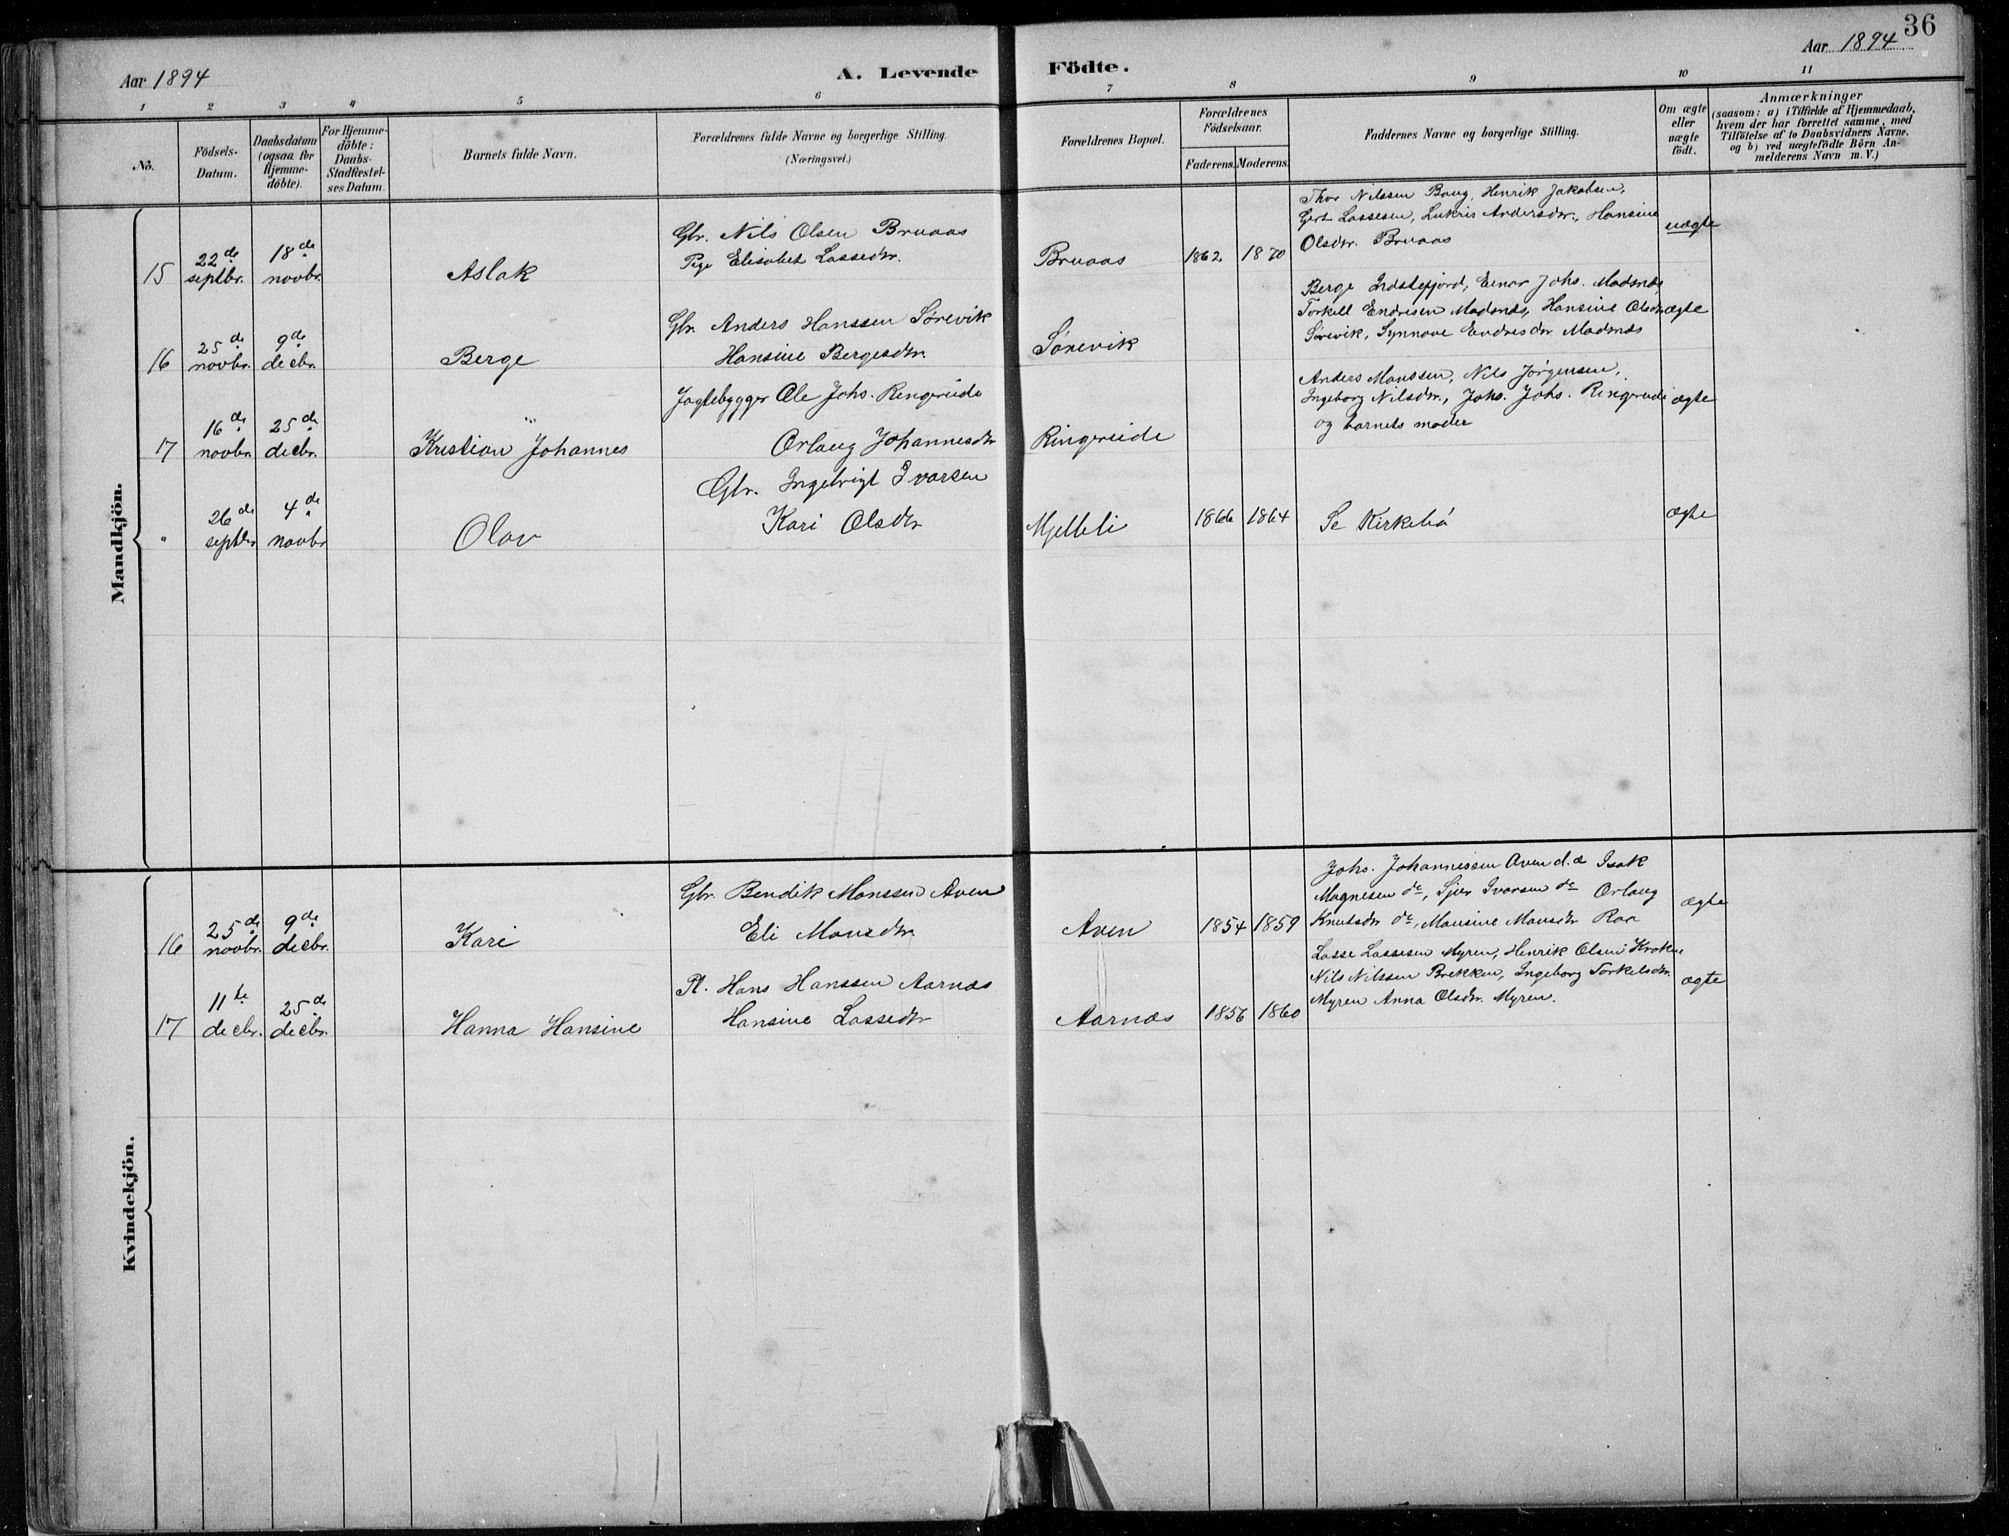 36
Aar 1894
A. Levende Födte.
Aar 1894
1 2 3 4 5 6 7 8 9 10 11
No.
Födsels-
Datum.
Daabsdatum
(ogsaa for
Hjemme-
döbte).
For Hjemme-
döbte:
Daabs-
Stadfæstel-
ses Datum.
Barnets fulde Navn.
Forældrenes fulde Navne og borgerlige Stilling.
(Næringsvei.)
Forældrenes Bopæl.
Forældrenes
Födselsaar.
Faderens. Moderens.
Faddernes Navne og borgerlige Stilling.
Om ægte
eller
uægte
födt.
Anmærkninger
(saasom: a) i Tilfælde af Hjemmedaab,
hvem der har forrettet samme, med
Tilföielse af to Daabsvidners Navne,
og b) ved uægtefödte Börn An-
melderens Navn m. V.)
Mandkjön.
15 22de septbr. 18de novbr. Aslak
Gbr. Nils Olsen Bruaas
Pige Elisabet Lassedtr.
Bruaas 1862 1870
Thor Nilssen Baug, Henrik Jakobsen,
Gert Lassesen, Lukris Andersdtr., Hansine
Olsdtr. Bruaas
uægte
16 25de novbr. 9de decbr. Berge
Gbr. Anders Hanssen Sörevik
Hansine Bergesdtr.
Sörevik
Berge Indstefjord, Einar Johs. Madsnæs,
Torkell Endresen Madsnæs, Hansine Olsdtr.
Sörevik, Synnove Endresdtr Madsnæs
ægte
17 16de novbr. 25de decbr. Kristian Johannes
Jagtebygger Ole Johs. Ringereide
Orlaug Johannesdtr
Ringereide
Anders Monssen, Nils Jörgensen,
Ingeborg Nilsdtr., Johs. Johs. Ringreide
og barnets moder
ægte
" 26de septbr 4de novbr Olav
Gbr. Ingebrigt Ivarsen
Kari Olsdtr
Mjelleli 1866 1864
Se Kirkebö
ægte
Kvindekjön.
16 25de novbr. 9de decbr. Kari
Gbr. Bendik Monssen Aven
Eli Monsdtr.
Aven 1854 1859
Johs. Johannessen Aven d.æ Isak
Magnesen do, Sjur Ivarsen do Orlaug
Knutsdtr do, Monsine Monsdtr Raa
ægte
17 11te decbr. 25de decbr. Hanna Hansine
Pl. Hans Hanssen Aarnæs
Hansine Lassedtr
Aarnæs 1856 1860
Lasse Lassesen Myren, Henrik Olsen Kroken
Nils Nilssen Brekken, Ingeborg Torkelsdtr.
Myren Anna Olsdtr. Myren.
ægte